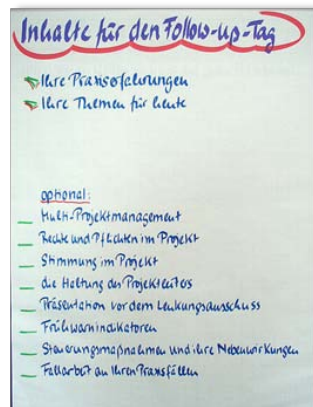 Inhalte für den Follow-up-Tag
Ihre Praxiserfahrungen
Ihre Themen für heute
optional:
Multi-Projektmanagement
Rechte und Pflichten im Projekt
Stimmung im Projekt
die Haltung des Projektleiters
Präsentation vor dem Lenkungsausschuss
Frühwarnindikatoren
Steuerungsmaßnahmen und ihre Nebenwirkungen
Fallarbeit an Ihren Praxisfällen